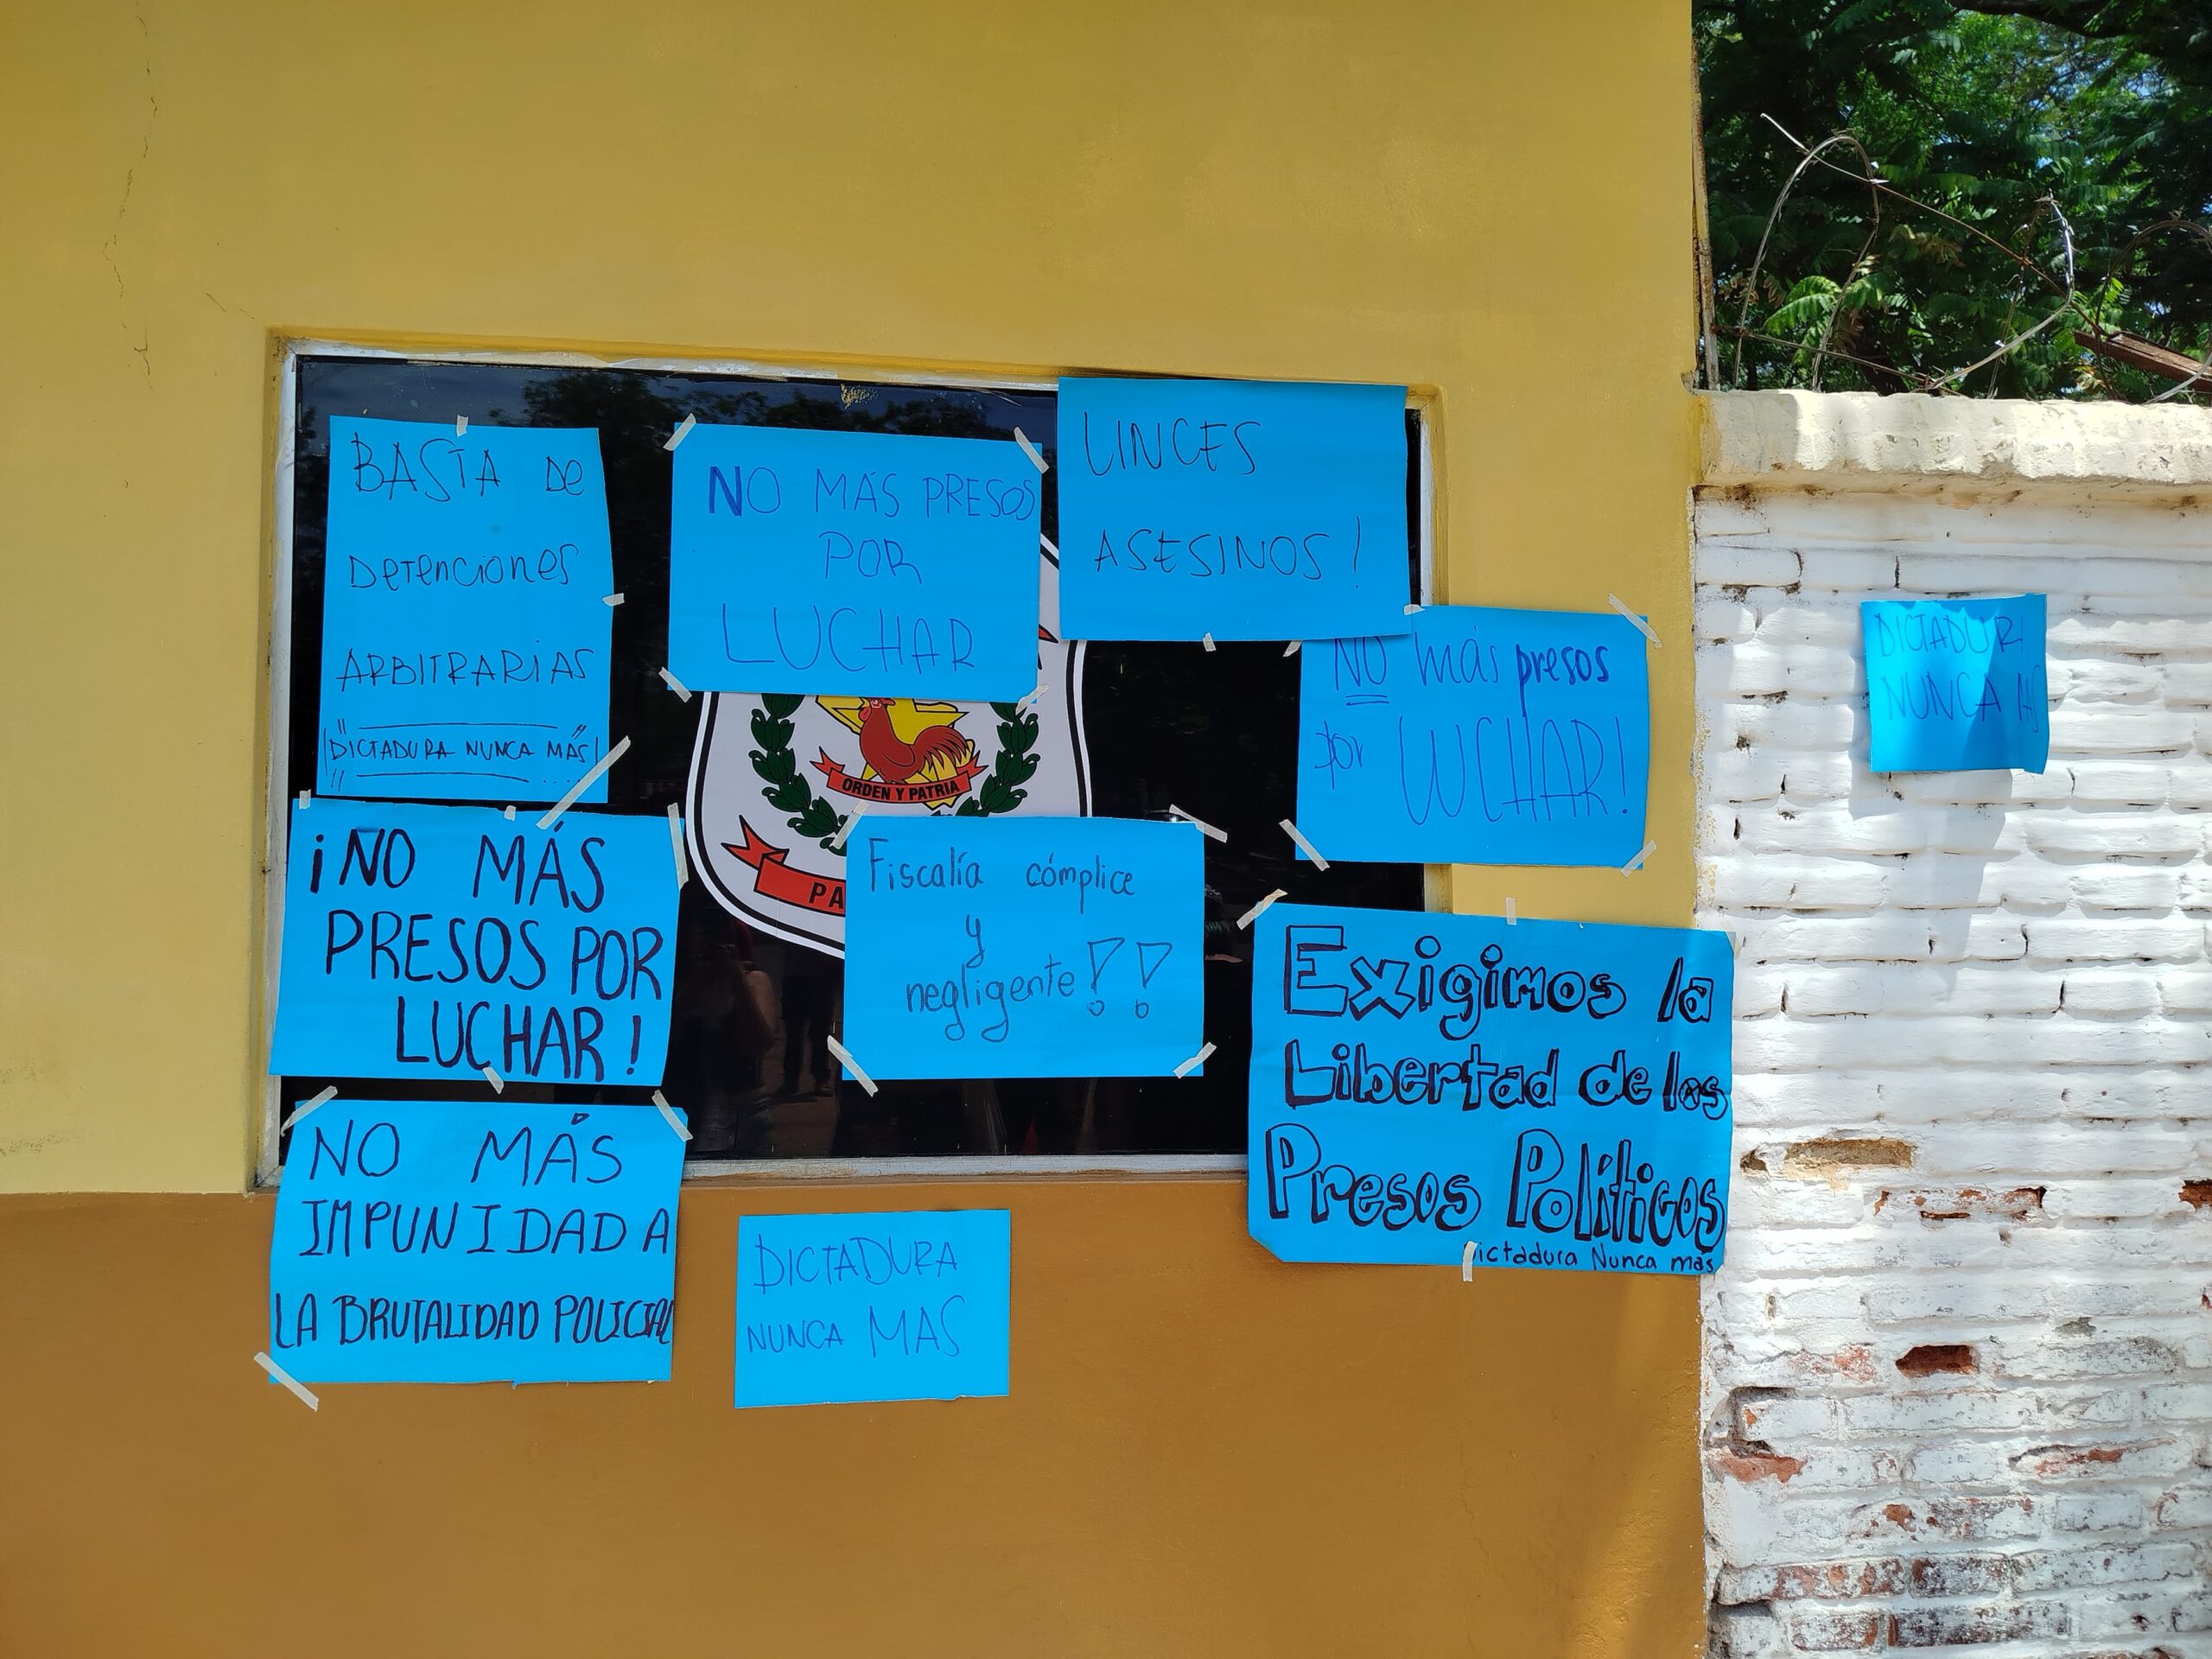 BASTA DE
DETENCIONES
ARBITRARIAS
"DICTADURA NUNCA MÁS"
NO MÁS PRESOS
POR
LUCHAR
LINCES
ASESINOS!
NO más presos
por LUCHAR!
DICTADUR
NUNCA
ORDEN Y PATRIA
PA
¡NO MÁS
PRESOS POR
LUCHAR!
Fiscalía cómplice
y
negligente!!
Exigimos la
Libertad de los
Presos Políticos
ictadura Nunca mas
NO MÁS
IMPUNIDAD A
LA BRUTALIDAD POLICIAL
DICTADURA
NUNCA MAS